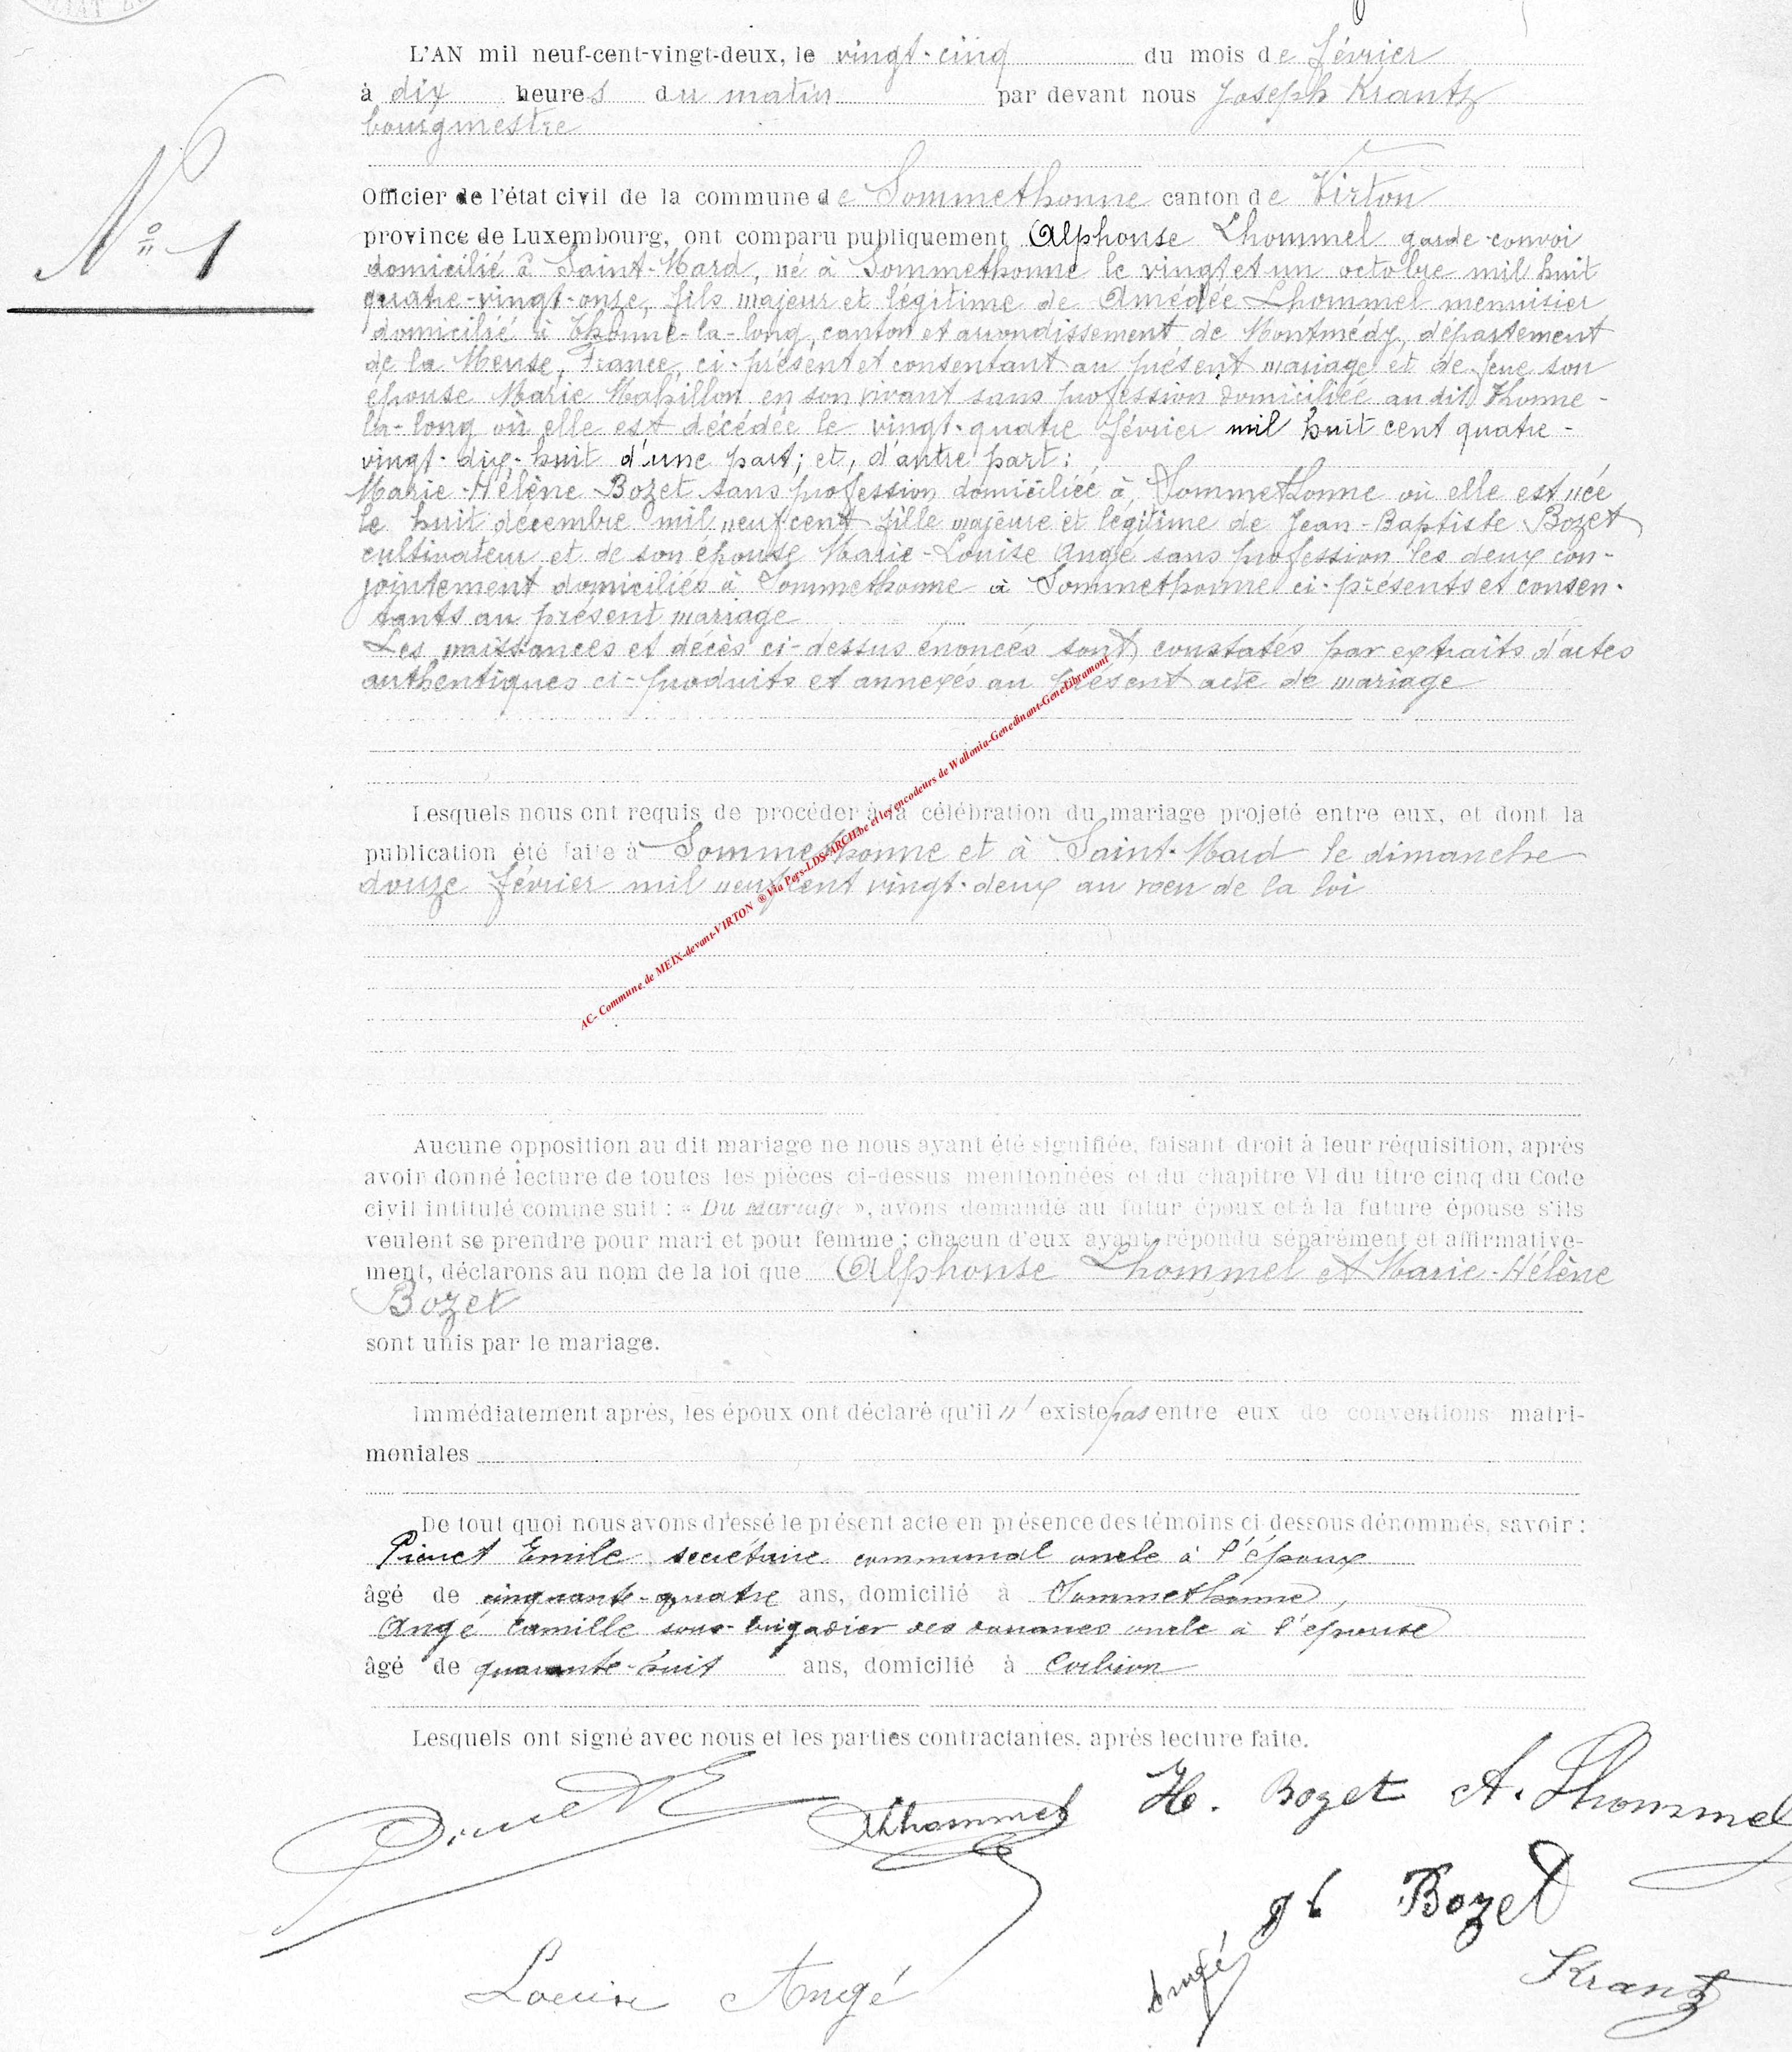 L'AN mil neuf-cent-vingt-deux, le vingt-cinq du mois de février
à dix heures du matin par devant nous Joseph Krantz
bourgmestre
Officier de l'état civil de la commune de Sommethonne canton de Virton
N° 1
province de Luxembourg, ont comparu publiquement Alphonse Lhommel garde-convoi
domicilié à Saint-Mard, né à Sommethonne le vingt et un octobre mil huit
quatre-vingt-onze, fils majeur et légitime de Amédée Lhommel menuisier
domicilié à Thonne-la-long, canton et arrondissement de Montmédy, département
de la Meuse, France, ci-présent et consentant au présent mariage et de feue son
épouse Marie Mabillon en son vivant sans profession domiciliée au dit Thonne-
la-long où elle est décédée le vingt-quatre février mil huit cent quatre-
vingt-dix-huit d'une part; et, d'autre part:
Marie-Hélène Bozet sans profession domiciliée à Sommethonne où elle est née
le huit décembre mil neuf cent fille majeure et légitime de Jean-Baptiste Bozet
cultivateur et de son épouse Marie-Louise Angé sans profession les deux con-
jointement domiciliés à Sommethonne à Sommethonne ci-présents et consen-
tants au présent mariage
Les naissances et décès ci-dessus énoncés sont constatés par extraits d'actes
authentiques ci-produits et annexés au présent acte de mariage
AC- Commune de MEIX-devant-VIRTON ® Via Pers-LDS-ARCH.be et les encodeurs de Wallonia-Genedinant-GeneLibramont
Lesquels nous ont requis de procéder à la célébration du mariage projeté entre eux, et dont la
publication été faite à Sommethonne et à Saint-Mard le dimanche
douze février mil neuf cent vingt-deux au vœu de la loi
Aucune opposition au dit mariage ne nous ayant été signifiée, faisant droit à leur réquisition, après
avoir donné lecture de toutes les pièces ci-dessus mentionnées et du chapitre VI du titre cinq du Code
civil intitulé comme suit : « Du Mariage », avons demandé au futur époux et à la future épouse s'ils
veulent se prendre pour mari et pour femme ; chacun d'eux ayant répondu séparément et affirmative-
ment, déclarons au nom de la loi que Alphonse Lhommel et Marie-Hélène
Bozet
sont unis par le mariage.
Immédiatement après, les époux ont déclaré qu'il n' existe pas entre eux de conventions matri-
moniales
De tout quoi nous avons dressé le présent acte en présence des témoins ci dessous dénommés, savoir :
Emile secrétaire communal oncle à l'époux
âgé de cinquante-quatre ans, domicilié à Sommethonne,
Angé Camille sous-brigadier des douanes oncle à l'épouse
âgé de quarante-huit ans, domicilié à Corbion
Lesquels ont signé avec nous et les parties contractantes, après lecture faite.
Lhommel H. Bozet A. Lhommel
Bozet
Louise Angé Angé Krantz